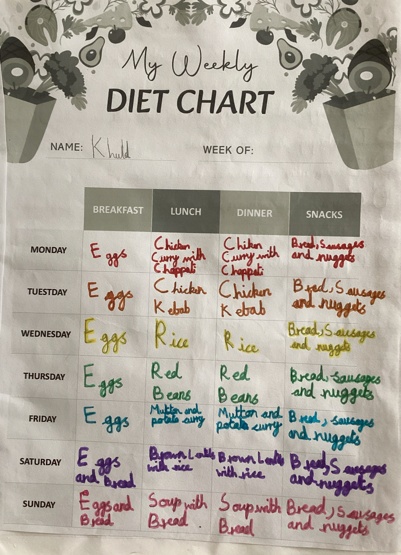 My Weekly
DIET CHART
NAME: Khuld WEEK OF:
BREAKFAST LUNCH DINNER SNACKS
MONDAY
Eggs
Chicken
Curry with
Chappati
Chiken
Curry with
Chappati
Bread, Sausages
and nuggets
TUESDAY
Eggs
Chicken
Kebab
Chicken
Kebab
Bread, Sausages
and nuggets
WEDNESDAY
Eggs
Rice
Rice
Bread, Sausages
and nuggets
THURSDAY
Eggs
Red
Beans
Red
Beans
Bread, sausages
and nuggets
FRIDAY
Eggs
Mutton and
potato curry
Mutton and
potato curry
Bread, sausages
and nuggets
SATURDAY
Eggs
and Bread
Brown
with rice
Brown
with rice
Bread, Sausages
and nuggets
SUNDAY
Eggs and
Bread
Soup with
Bread.
Soup with
Bread
Bread, Sausages
and nuggets